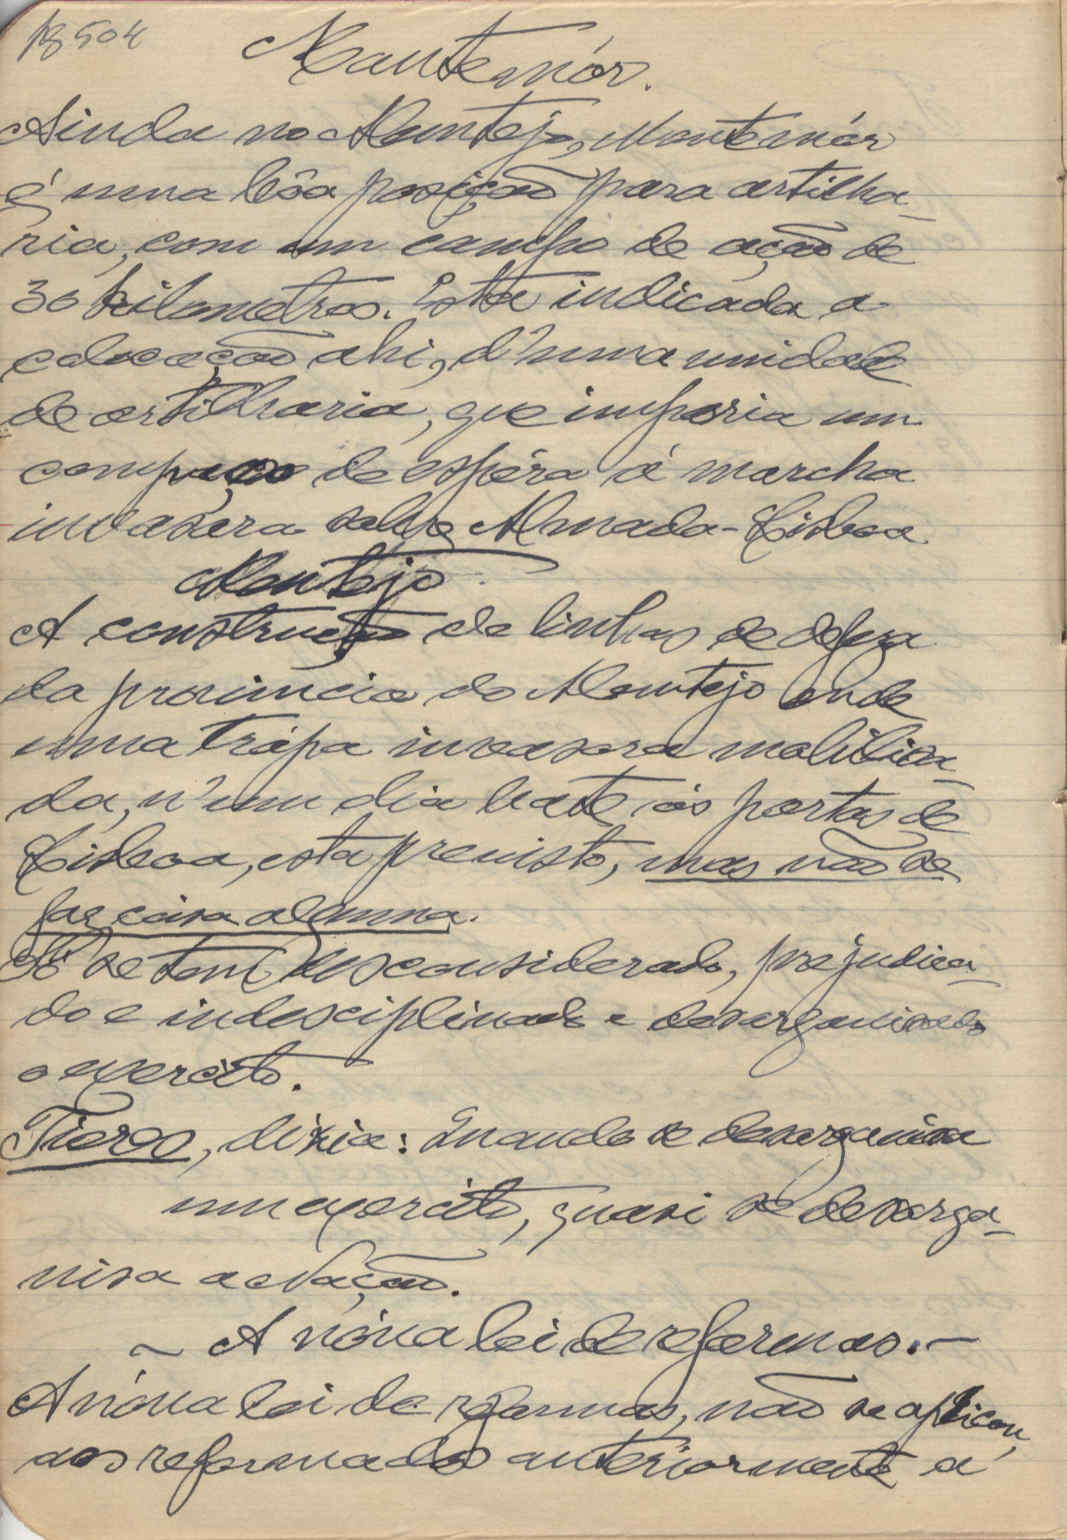 18504
Montemór.
Ainda no Alentejo, Montemór
é uma bôa posição para artilha-
ria, com um campo de ação de
30 kilometros. Está indicada a
colocação ahi, d'uma unidade
de artilharia, que imporia um
compaço de espéra á marcha
invasora sobre Almada-Lisboa
Alentejo
A construção de linhas de defesa
da provincia do Alentejo onde
uma trópa invasora mobilisa-
da, n'um dia bate ás portas de
Lisboa, está previsto, mas não se
faz coisa alguma.
Só se tem desconsiderado, prejudica-
do e indesciplinado e desorganisado
o exercito.
Tiers, dizia: Quando se desorganisa
um exercito, quasi se desorga-
nisa a Nação.
~ A nóva lei de reformas. ~
A nóva lei de reformas, não se aplicou,
aos reformados anteriormente á